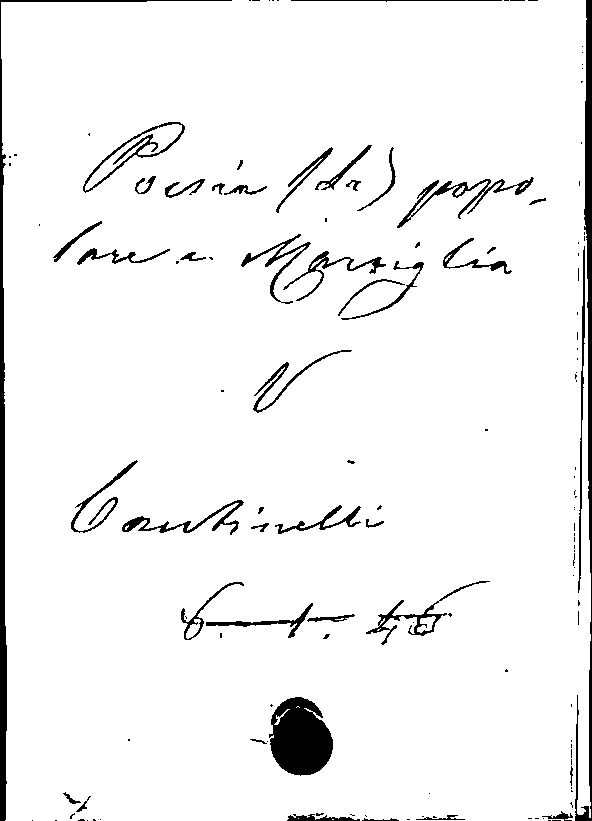 Poesia (la) popo-
lare a Marsiglia
V
Cantinelli